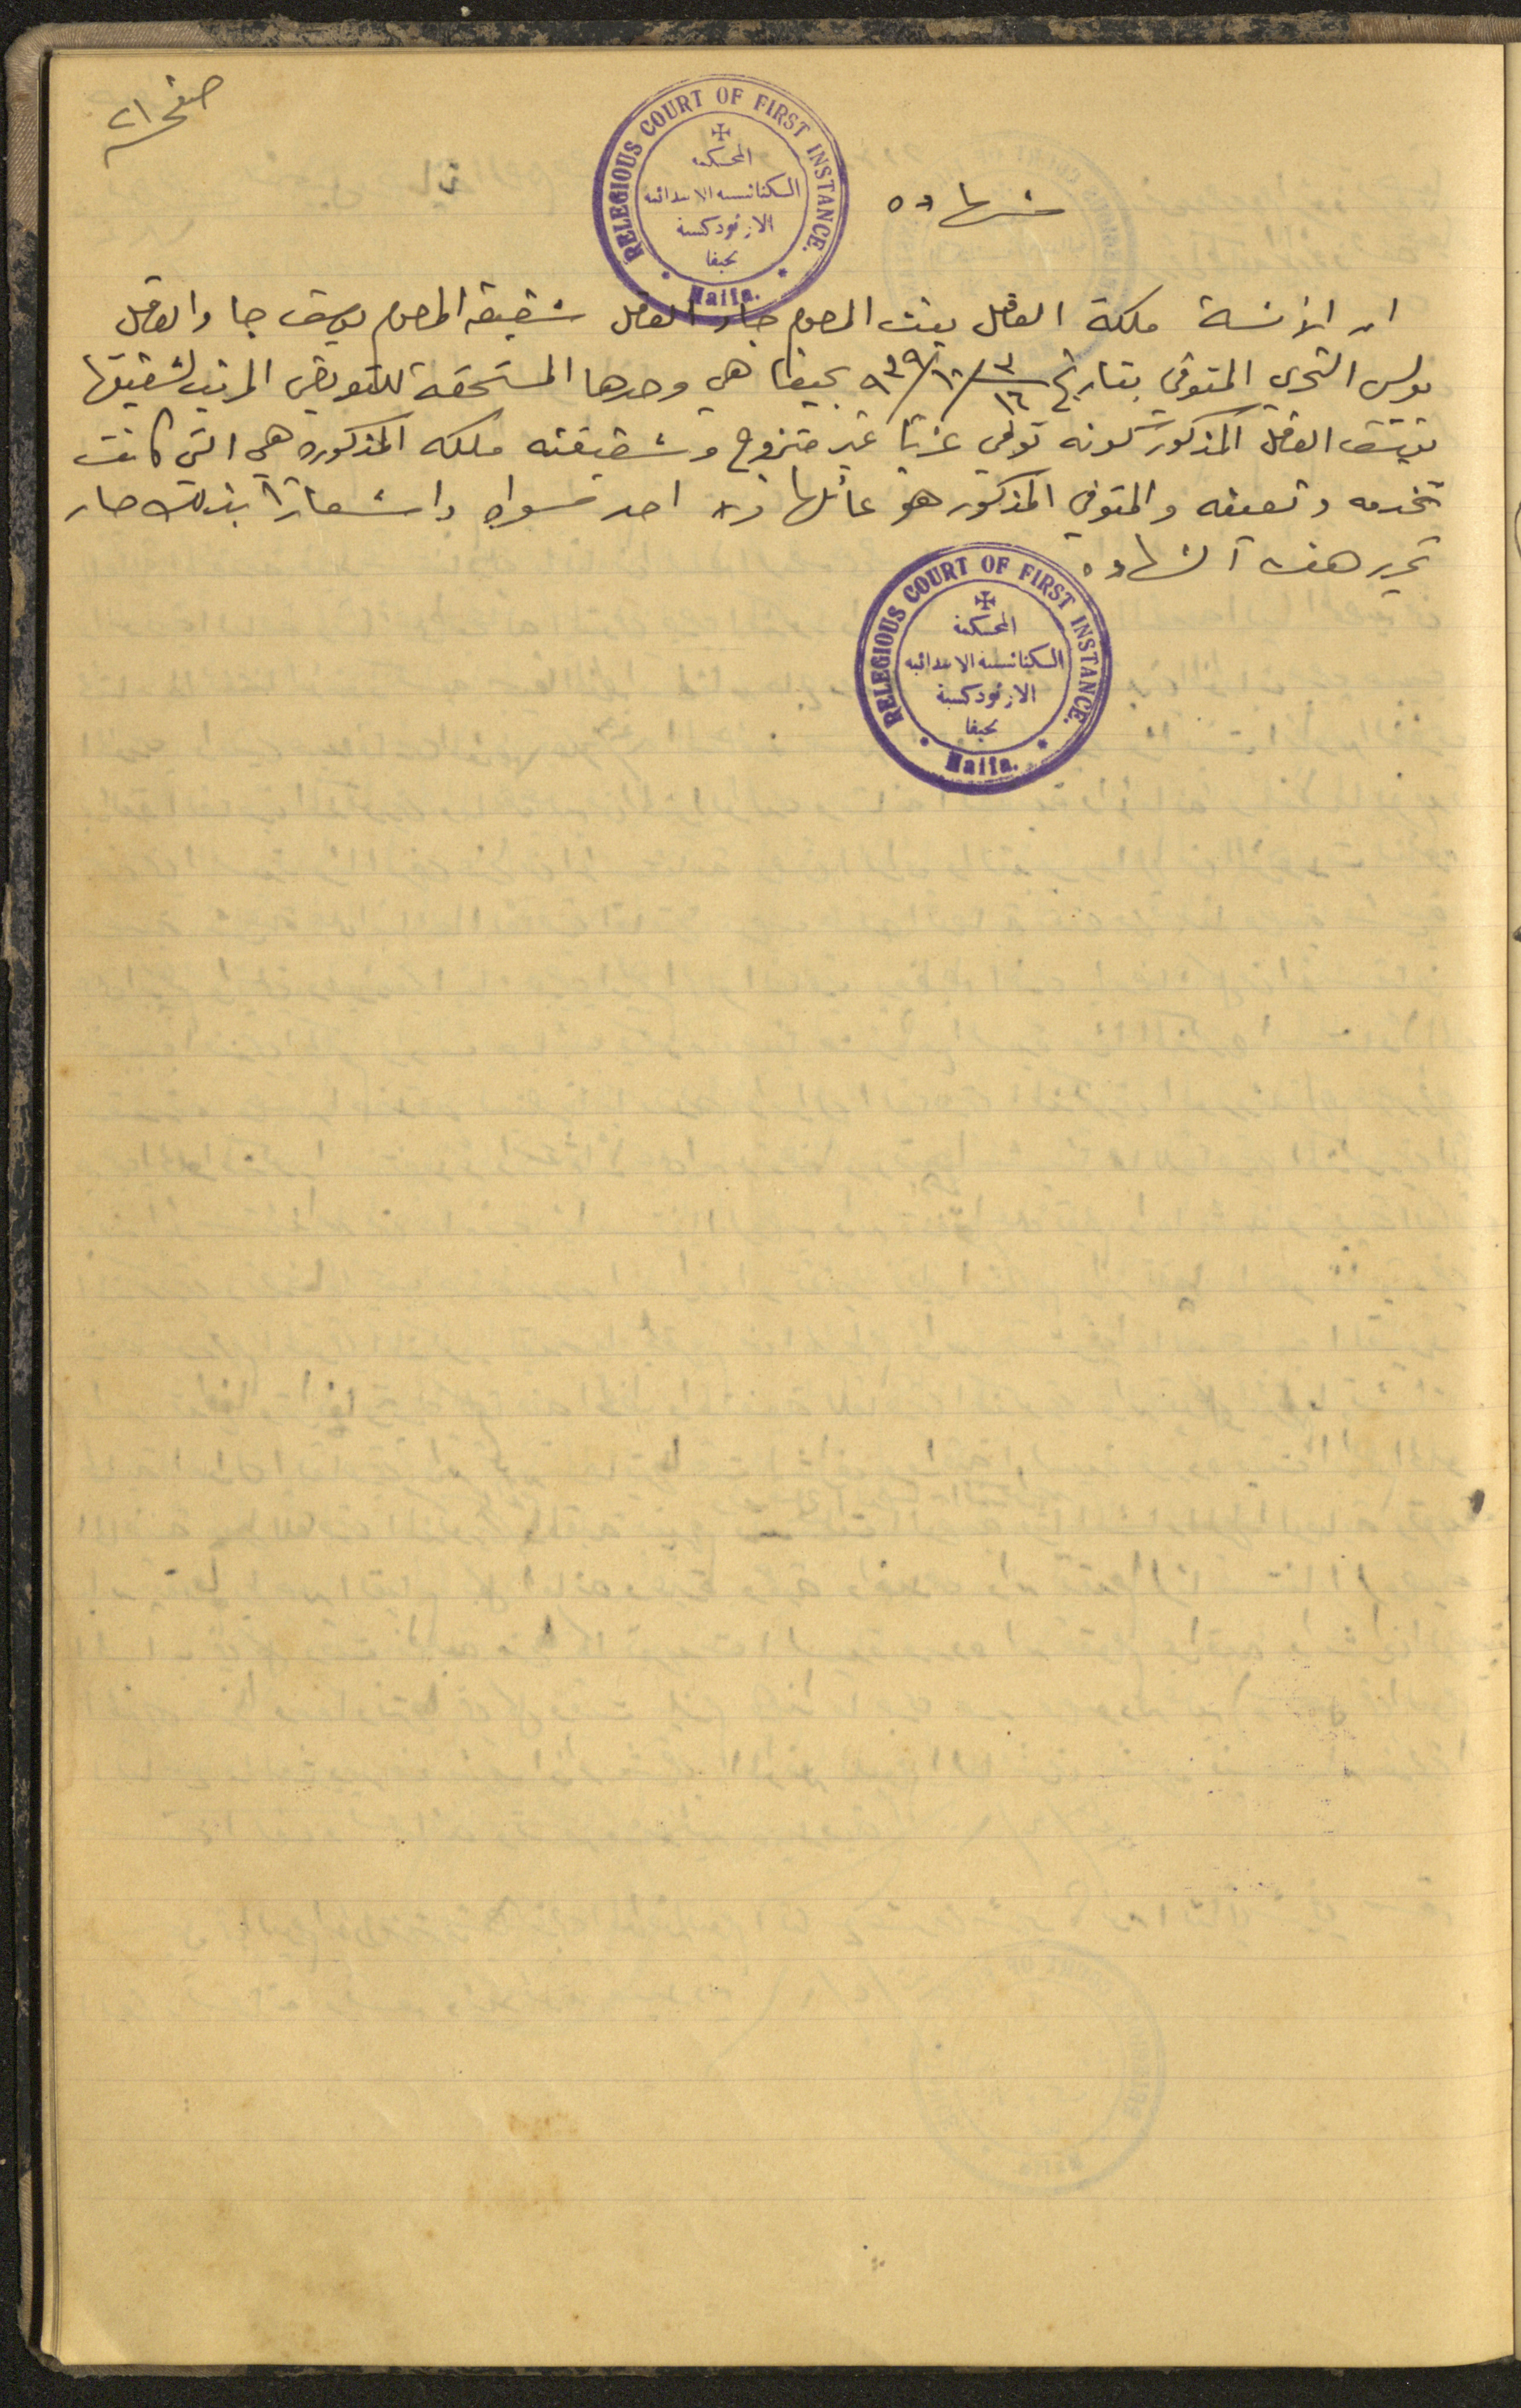 صفحة ٢١
RELEGIOUS COURT OF FIRST INSTANCE.
المحكمة
الكنائسية الابتدائية
الارثوذكسية
بحيفا
Haifa.
شهاده
ان الآنسة ملكة الفحل بنت المرحوم جاد الفحل شقيقة المرحوم يوسف جاد الفحل
بوليس التحري المتوفي بتاريخ ٣/١٦ /١٠/ ٩٣٩ بحيفا هي وحدها المستحقة للتعويض المرتب لشقيقها
يوسف الفحل المذكور كونه توفي عزبا غير متزوج وشقيقته ملكه المذكوره هي التي كانت
تخدمه وتعينه والمتوفي المذكور هو عائلها ولا احد سواه واشعارا بذلك صار
تحرير هذه الشهاده
RELEGIOUS COURT OF FIRST INSTANCE.
المحكمة
الكنائسية الابتدائية
الارثوذكسية
بحيفا
Haifa.